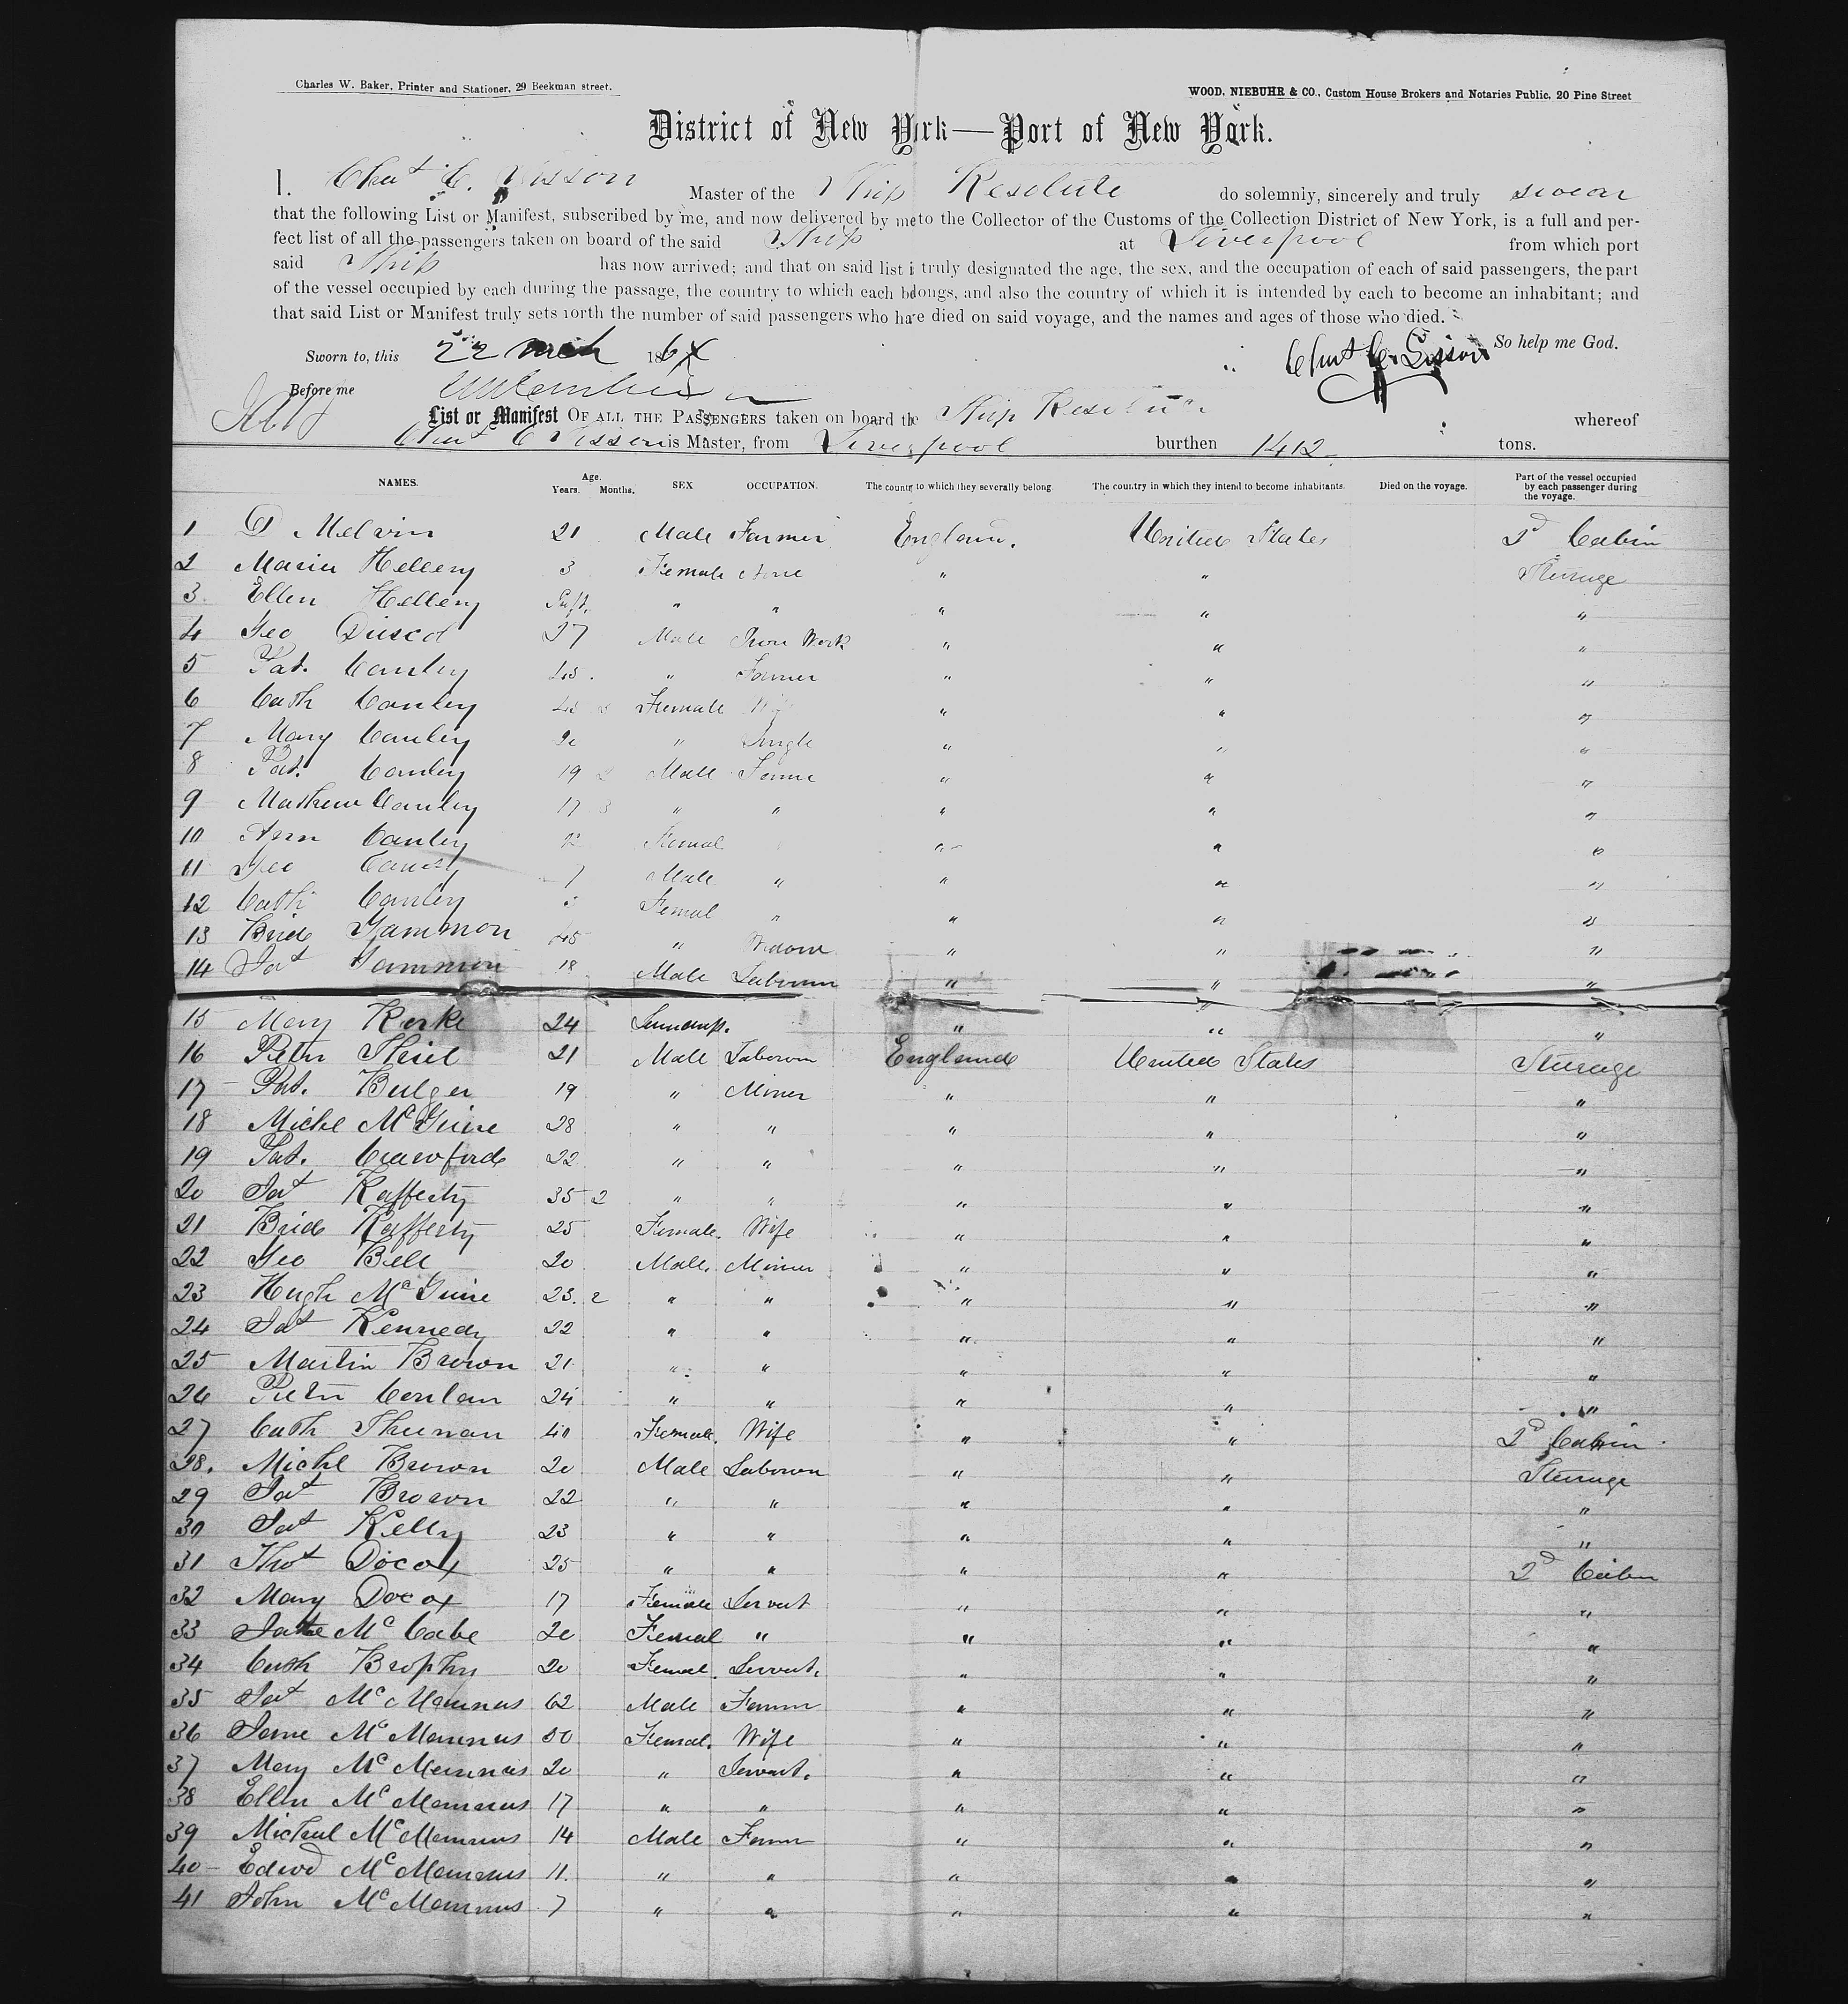 Charles W. Baker, Printer and Stationer, 29 Beekman street.
WOOD, NIEBUHR & CO., Custom House Brokers and Notaries Public, 20 Pine Street
District of New York—Port of New York.
I. Chas C. Sisson Master of the Ship Resolute do solemnly, sincerely and truly swear
that the following List or Manifest, subscribed by me, and now delivered by me to the Collector of the Customs of the Collection District of New York, is a full and per-
fect list of all the passengers taken on board of the said Ship at Liverpool from which port
said Ship has now arrived; and that on said list i truly designated the age, the sex, and the occupation of each of said passengers, the part
of the vessel occupied by each during the passage, the country to which each belongs, and also the country of which it is intended by each to become an inhabitant; and
that said List or Manifest truly sets forth the number of said passengers who have died on said voyage, and the names and ages of those who died.
So help me God.
Sworn to, this 22 Mch 1864 Chas C. Sisson
Before me
List or Manifest OF ALL THE PASSENGERS taken on board the Ship Resolute whereof
Chas C Sisson is Master, from Liverpool burthen 1412 tons.
NAMES. Age. Years. Months. SEX OCCUPATION. The country to which they severally belong. The country in which they intend to become inhabitants. Died on the voyage. Part of the vessel occupied by each passenger during the voyage.
1 D Melvin 21 Male Farmer England. United States 2d Cabin
2 Maria Hellery 3 Female None " " Steerage
3 Ellen Hellery Inft. " " " " "
4 Geo Driscol 27 Male Iron Work " " "
5 Pat. Canley 45 " Farmer " " "
6 Cath Canley Female " " "
7 Mary Canley 20 " Single " " "
8 Pat. Canley 19 2 Male Farme " " "
9 Mathew Canley 17 3 " " " " "
10 Ann Canley Femal " " "
11 Geo Canley 7 Male " " " "
12 Cath Canley Femal " " " "
13 Brid Gammon 45 " Widow " " "
14 Pat Gammon 18 Male Labourer " " "
15 Mary Rorke 24 " " "
16 Peter Shiel 21 Male Labourer England United States Steerage
17 Pat. Bulger 19 " Miner " " "
18 Michl McGuire 28 " " " " "
19 Pat. Crawford 22 " " " " "
20 Pat Rafferty 35 2 " " " " "
21 Brid Rafferty 25 Female. Wife " " "
22 Geo Bell 20 Male. Miner " " "
23 Hugh McGuire 23. 2 " " " " "
24 Pat Kennedy 22 " " " " "
25 Martin Brown 21 " " " " "
26 Peter Conlan 24 " " " " "
27 Cath Thunan 40 Female. Wife " " 2d Cabin
28. Michl Brown 20 Male Labourer " " Steerage
29 Pat Brown 22 " " " " "
30 Pat Kelly 23 " " " " "
31 Thos Docox 25 " " " " 2d Cabin
32 Mary Docox 17 Female Servant " " "
33 McCabe 20 Femal " " " "
34 Cath Brophy 20 Femal. Servant. " " "
35 Pat McMannus 62 Male Farmer " " "
36 Jane McMannus 50 Femal. Wife " " "
37 Mary McMannus 20 " Servant. " " "
38 Ellen McMannus 17 " " " " "
39 Micheal McMannus 14 Male Farmer " " "
40 Edwd McMannus 11. " " " " "
41 John McMannus 7 " " " " "